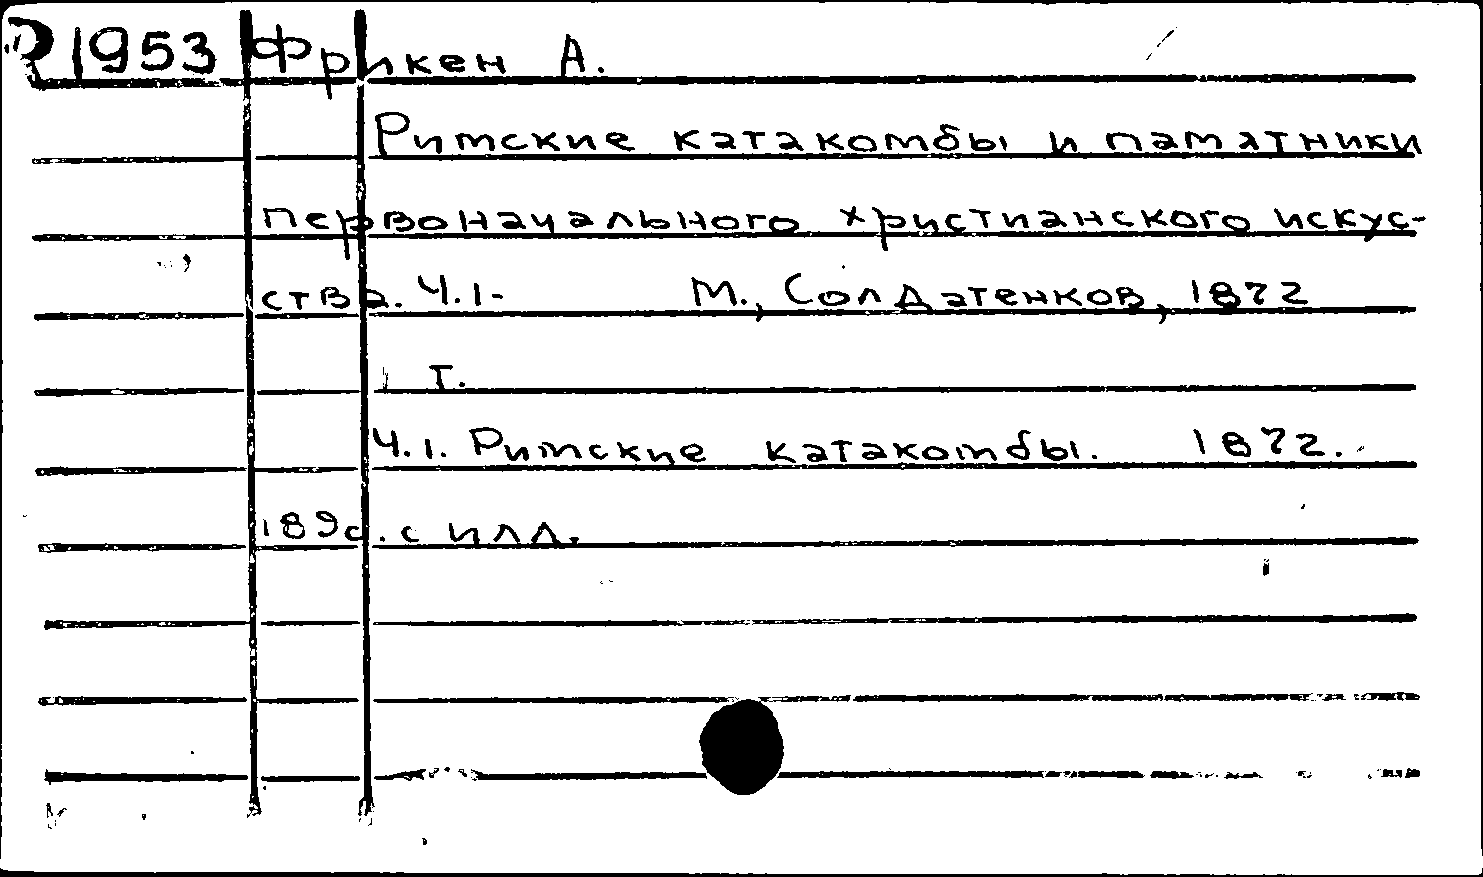 1953 Фрикен А.
Римские катакомбы и памятники
первоначального христианского искус-
ства. Ч.1- М., Солдатенков, 1872
1 т.
Ч.1. Римские катакомбы. 1872.
189с. с илл.